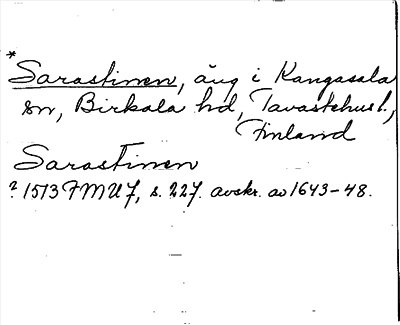 *
Sarastinen, äng i Kangasala
sn, Birkala hd, Tavastehus l.,
Finland
Sarastinen
? 1513 FMU 7, s. 227. avskr. av 1643-48.